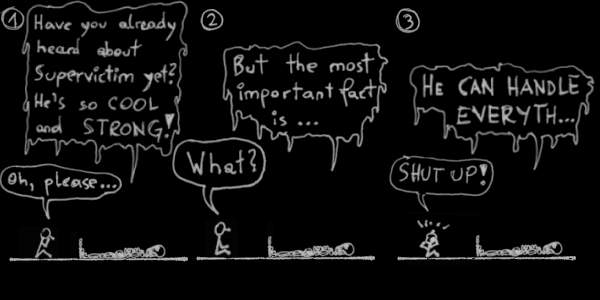 1
Have you already
heard about
Supervictim yet?
He's so COOL
and STRONG!
Oh, please...
2
But the most
important fact
is ...
What?
3
HE CAN HANDLE
EVERYTH...
SHUT UP!